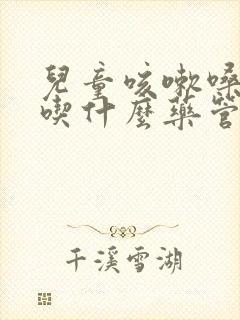 兒童咳嗽嗓
喫什麼藥管
千溪雪湖